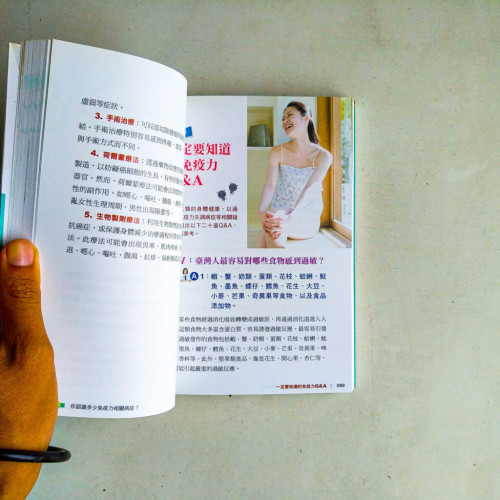 慮個等症狀。
3. 手術治療：可局部切除腫瘤
結，手術治療特別容易感到疼痛、虛弱
與手術方式而不同。
4. 荷爾蒙療法：透過藥物
製造，以妨礙癌細胞的生長，有些
器官。然而，荷爾蒙療法可能會出現
性的副作用，如噁心、嘔吐、腫脹、潮
亂女性生理周期，男性出現陽萎等
5. 生物製劑療法：利用生物製
抗癌症，或保護身體減少治療過程
法。此療法可能會出現寒、肌肉
退、噁心、嘔吐、腹瀉、紅疹、易
你認識多少免疫力相關病症？
定要知道
免疫力
&A
類的身體健康，以過
疫力失調病症等相關疑
出以下二十道Q&A，
參考。
1：臺灣人最容易對哪些食物感到過敏？
A 1：蝦、蟹、奶類、蛋類、花枝、蛤蜊、魷
魚、墨魚、蠔仔、鱈魚、花生、大豆、
小麥、芒果、奇異果等食物，以及食品
添加物。
某些食物經過消化吸收轉變成過敏原，再通過消化道進入人
這類食物大多富含蛋白質，容易誘發過敏反應。最容易引發
過敏發作的食物包括蝦、蟹、奶類、蛋類、花枝、蛤蜊、魷
墨魚、蠔仔、鱈魚、花生、大豆、小麥、芒果、奇異果、啤
香料等。此外，堅果類食品，像是花生、開心果、杏仁等，
引起嚴重的過敏反應。
一定要知道的免疫力Q&A
089